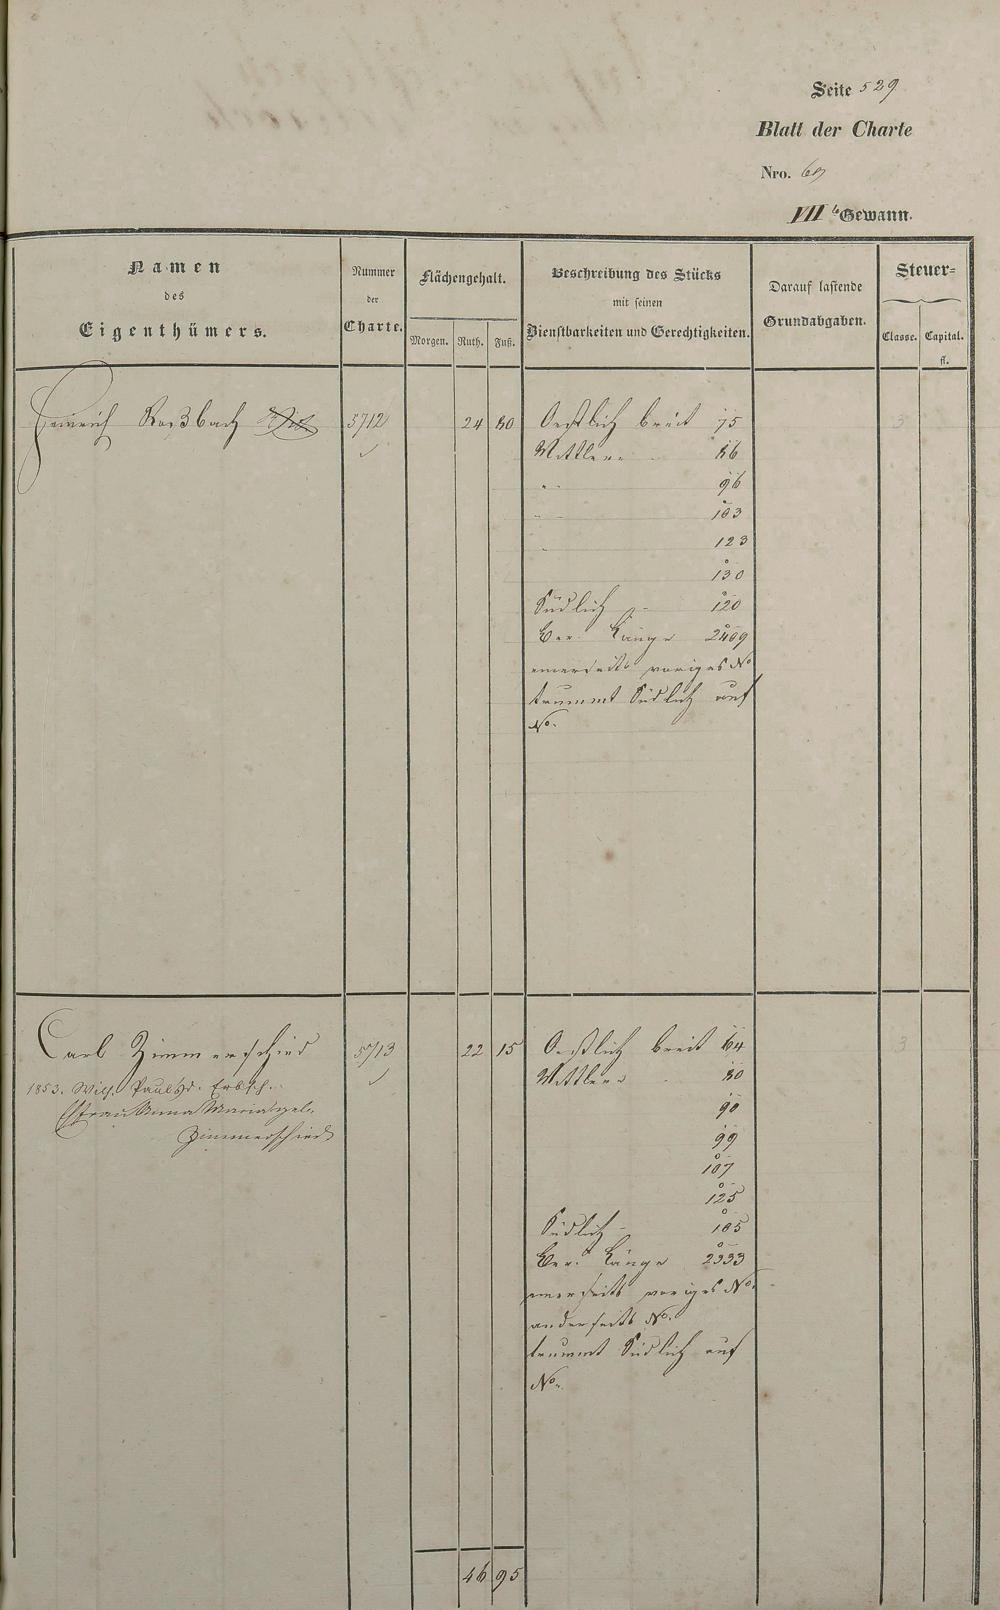 Seite 529
Blatt der Charte
Nro. 69
VII Gewann.
Namen
des
Eigenthümers.
Nummer
der
Charte.
Flächengehalt.
Morgen. Ruth. Fuß.
Beschreibung des Stücks
mit seinen
Dienstbarkeiten und Gerechtigkeiten.
Darauf lastende
Grundabgaben.
Steuer-
Classe. Capital.
fl.
Heinrich Roßbach 5712 24 80 Oestlich breit 75 3
Mittlere 86
" 96
" 103
" 123
130
Südlich " 120
Länge 2409
einerseits voriges No
trummt Südlich auf
No.
Carl Zimmerschied 5713 22 15 Oestlich breit 64 3
1853. Wilh. Paul
Mittlere 80
Ehefrau Anna Maria gel.
90
Zimmerschied
99
107
125
Südlich - 105
Länge 2333
einerseits voriges No.
anderseits No.
trummt Südlich auf
No.
46 95